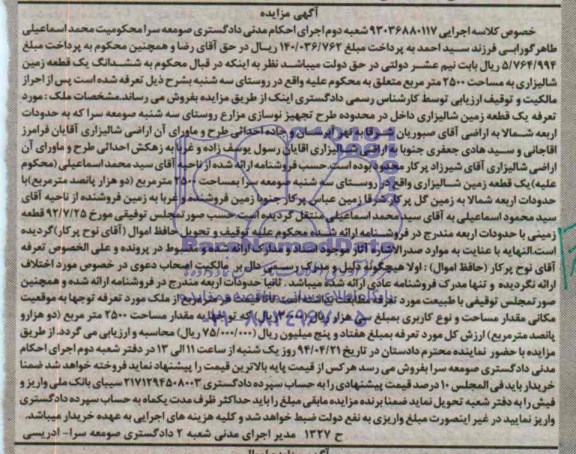 آگهی مزایده
خصوص کلاسه اجرایی ۹۳۰۳۶۸۸۰۱۱۷ شعبه دوم اجرای احکام مدنی دادگستری صومعه سرا محکومیت محمد اسماعیلی
طاهر گورابی فرزند سید احمد به پرداخت مبلغ ۱۴۰/۰۳۶/۷۶۲ ریال در حق آقای رضا و همچنین محکوم به پرداخت مبلغ
۵/۷۶۴/۹۹۴ ریال بابت نیم عشر دولتی در حق دولت میباشد نظر به اینکه در قبال محکوم به ششدانگ یک قطعه زمین
شالیزاری به مساحت ۲۵۰۰ متر مربع متعلق به محکوم علیه واقع در روستای سه شنبه بشرح ذیل تعرفه شده است پس از احراز
مالکیت و توقیف ارزیابی توسط کارشناس رسمی دادگستری اینک از طریق مزایده بفروش می رساند.مشخصات ملک : مورد
تعرفه یک قطعه زمین شالیزاری داخل در محدوده طرح تجهیز نوسازی مزارع روستای سه شنبه صومعه سرا که به حدودات
اربعه شمالا به اراضی آقای صبوریان شرقا به نهر و جاده احداثی طرح و ماورای آن اراضی شالیزاری آقایان فرامرز
آقاجانی و سید هادی جعفری جنوبا به اراضی شالیزاری آقایان رسول یوسف زاده و غربا به زهکش احداثی طرح و ماورای آن
اراضی شالیزاری آقای شیرزاد پرکار محدود بوده است.حسب فروشنامه ارائه شده از ناحیه آقای سید محمد اسماعیلی (محکوم
علیه) یک قطعه زمین شالیزاری واقع در روستای سه شنبه صومعه سرا بمساحت ۲۵۰۰ مترمربع (دو هزار پانصد مترمربع) با
حدودات اربعه شمالا به زمین گل پرکار شرقا زمین عباس پرکار جنوبا زمین فروشنده و غربا به زمین فروشنده از ناحیه آقای
سید محمود اسماعیلی به آقای سید محمد اسماعیلی منتقل گردیده است حسب صورتمجلس توقیفی مورخ ۹۲/۷/۲۵ قطعه
زمینی با حدودات اربعه مندرج در فروشنامه ارائه شده محکوم علیه توقیف و تحویل حافظ اموال (آقای نوح پرکار) گردیده
است.النهایه با عنایت به موارد صدرالاشاره آثار موجود اسناد و مدارک ارائه شده و مضبوط در پرونده و علی الخصوص تعرفه
آقای نوح پرکار (حافظ اموال) : اولا هیچگونه دلیل و مدرک رسمی دال بر مالکیت اصحاب دعوی در خصوص مورد اختلاف
ارائه نگردیده و تنها مدرک فروشنامه عادی ارائه شده میباشد . ثانیا حدودات اربعه مندرج در فروشنامه ارائه شده و همچنین
صورتمجلس توقیفی با طبیعت مورد تعرفه مطابقت نداشته است ملک مورد تعرفه توجها به موقعیت
مکانی مقدار مساحت و نوع کاربری بمبلغ سی هزار ریال که توجها به مقدار مساحت ۲۵۰۰ متر مربع (دو هزار و
پانصد مترمربع) ارزش کل مورد تعرفه بمبلغ هفتاد و پنج میلیون ریال (۷۵/۰۰۰/۰۰۰ ریال) محاسبه و ارزیابی می گردد. از طریق
مزایده با حضور نماینده محترم دادستان در تاریخ ۹۴/۰۴/۲۱ روز یک شنبه از ساعت ۱۱ الی ۱۳ در دفتر شعبه دوم اجرای احکام
مدنی دادگستری صومعه سرا بفروش می رسد هر کس از قیمت پایه بالاترین قیمت را پیشنهاد نماید فروخته خواهد شد ضمنا
خریدار باید فی المجلس ۱۰ درصد قیمت پیشنهادی را به حساب سپرده دادگستری ۲۱۷۱۲۹۴۵۰۸۰۰۳ سیبای بانک ملی واریز و
فیش را به دفتر شعبه تحویل نماید ضمنا برنده مزایده مابقی مبلغ را باید حداکثر ظرف مدت یکماه به حساب سپرده دادگستری
واریز نمایید در غیر اینصورت مبلغ واریزی به نفع دولت ضبط خواهد شد و کلیه هزینه های اجرایی به عهده خریدار میباشد.
ح ۱۳۲۷ مدیر اجرای مدنی شعبه ۲ دادگستری صومعه سرا- ادریسی